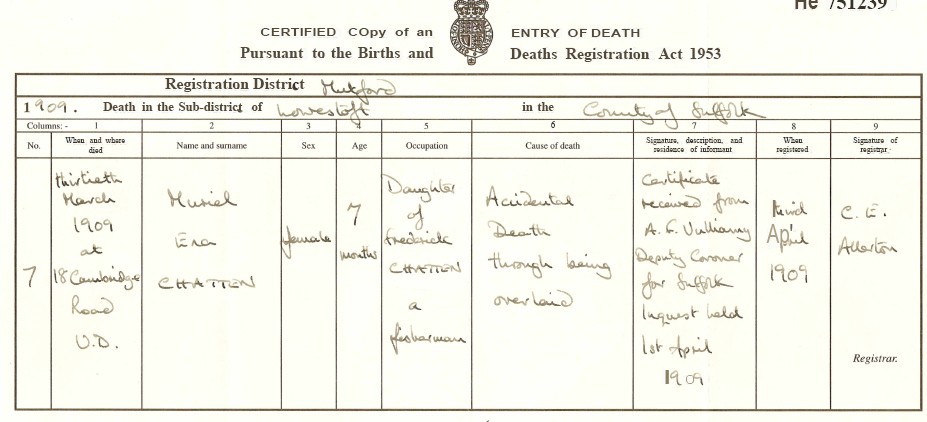 He 751239
CERTIFIED COPY of an ENTRY OF DEATH
Pursuant to the Births and Deaths Registration Act 1953
Registration District Mutford
1909. Death in the Sub-district of Lowestoft in the County of Suffolk
Columns:- 1 2 3 4 5 6 7 8 9
No.
When and where
died
Name and surname
Sex
Age
Occupation
Cause of death
Signature, description, and
residence of informant
When
registered
Signature of
registrar
7
Thirtieth
March
1909
at
18 Cambridge
Road
U.D.
Muriel
Ena
CHATTEN
female
7
months
Daughter
of
Frederick
CHATTEN
a
fisherman
Accidental
Death
through being
overlaid
Certificate
received from
A. G. Vulliamy
Deputy Coroner
for Suffolk
Inquest held
1st April
1909
Third
April
1909
C. E.
Allerton
Registrar.